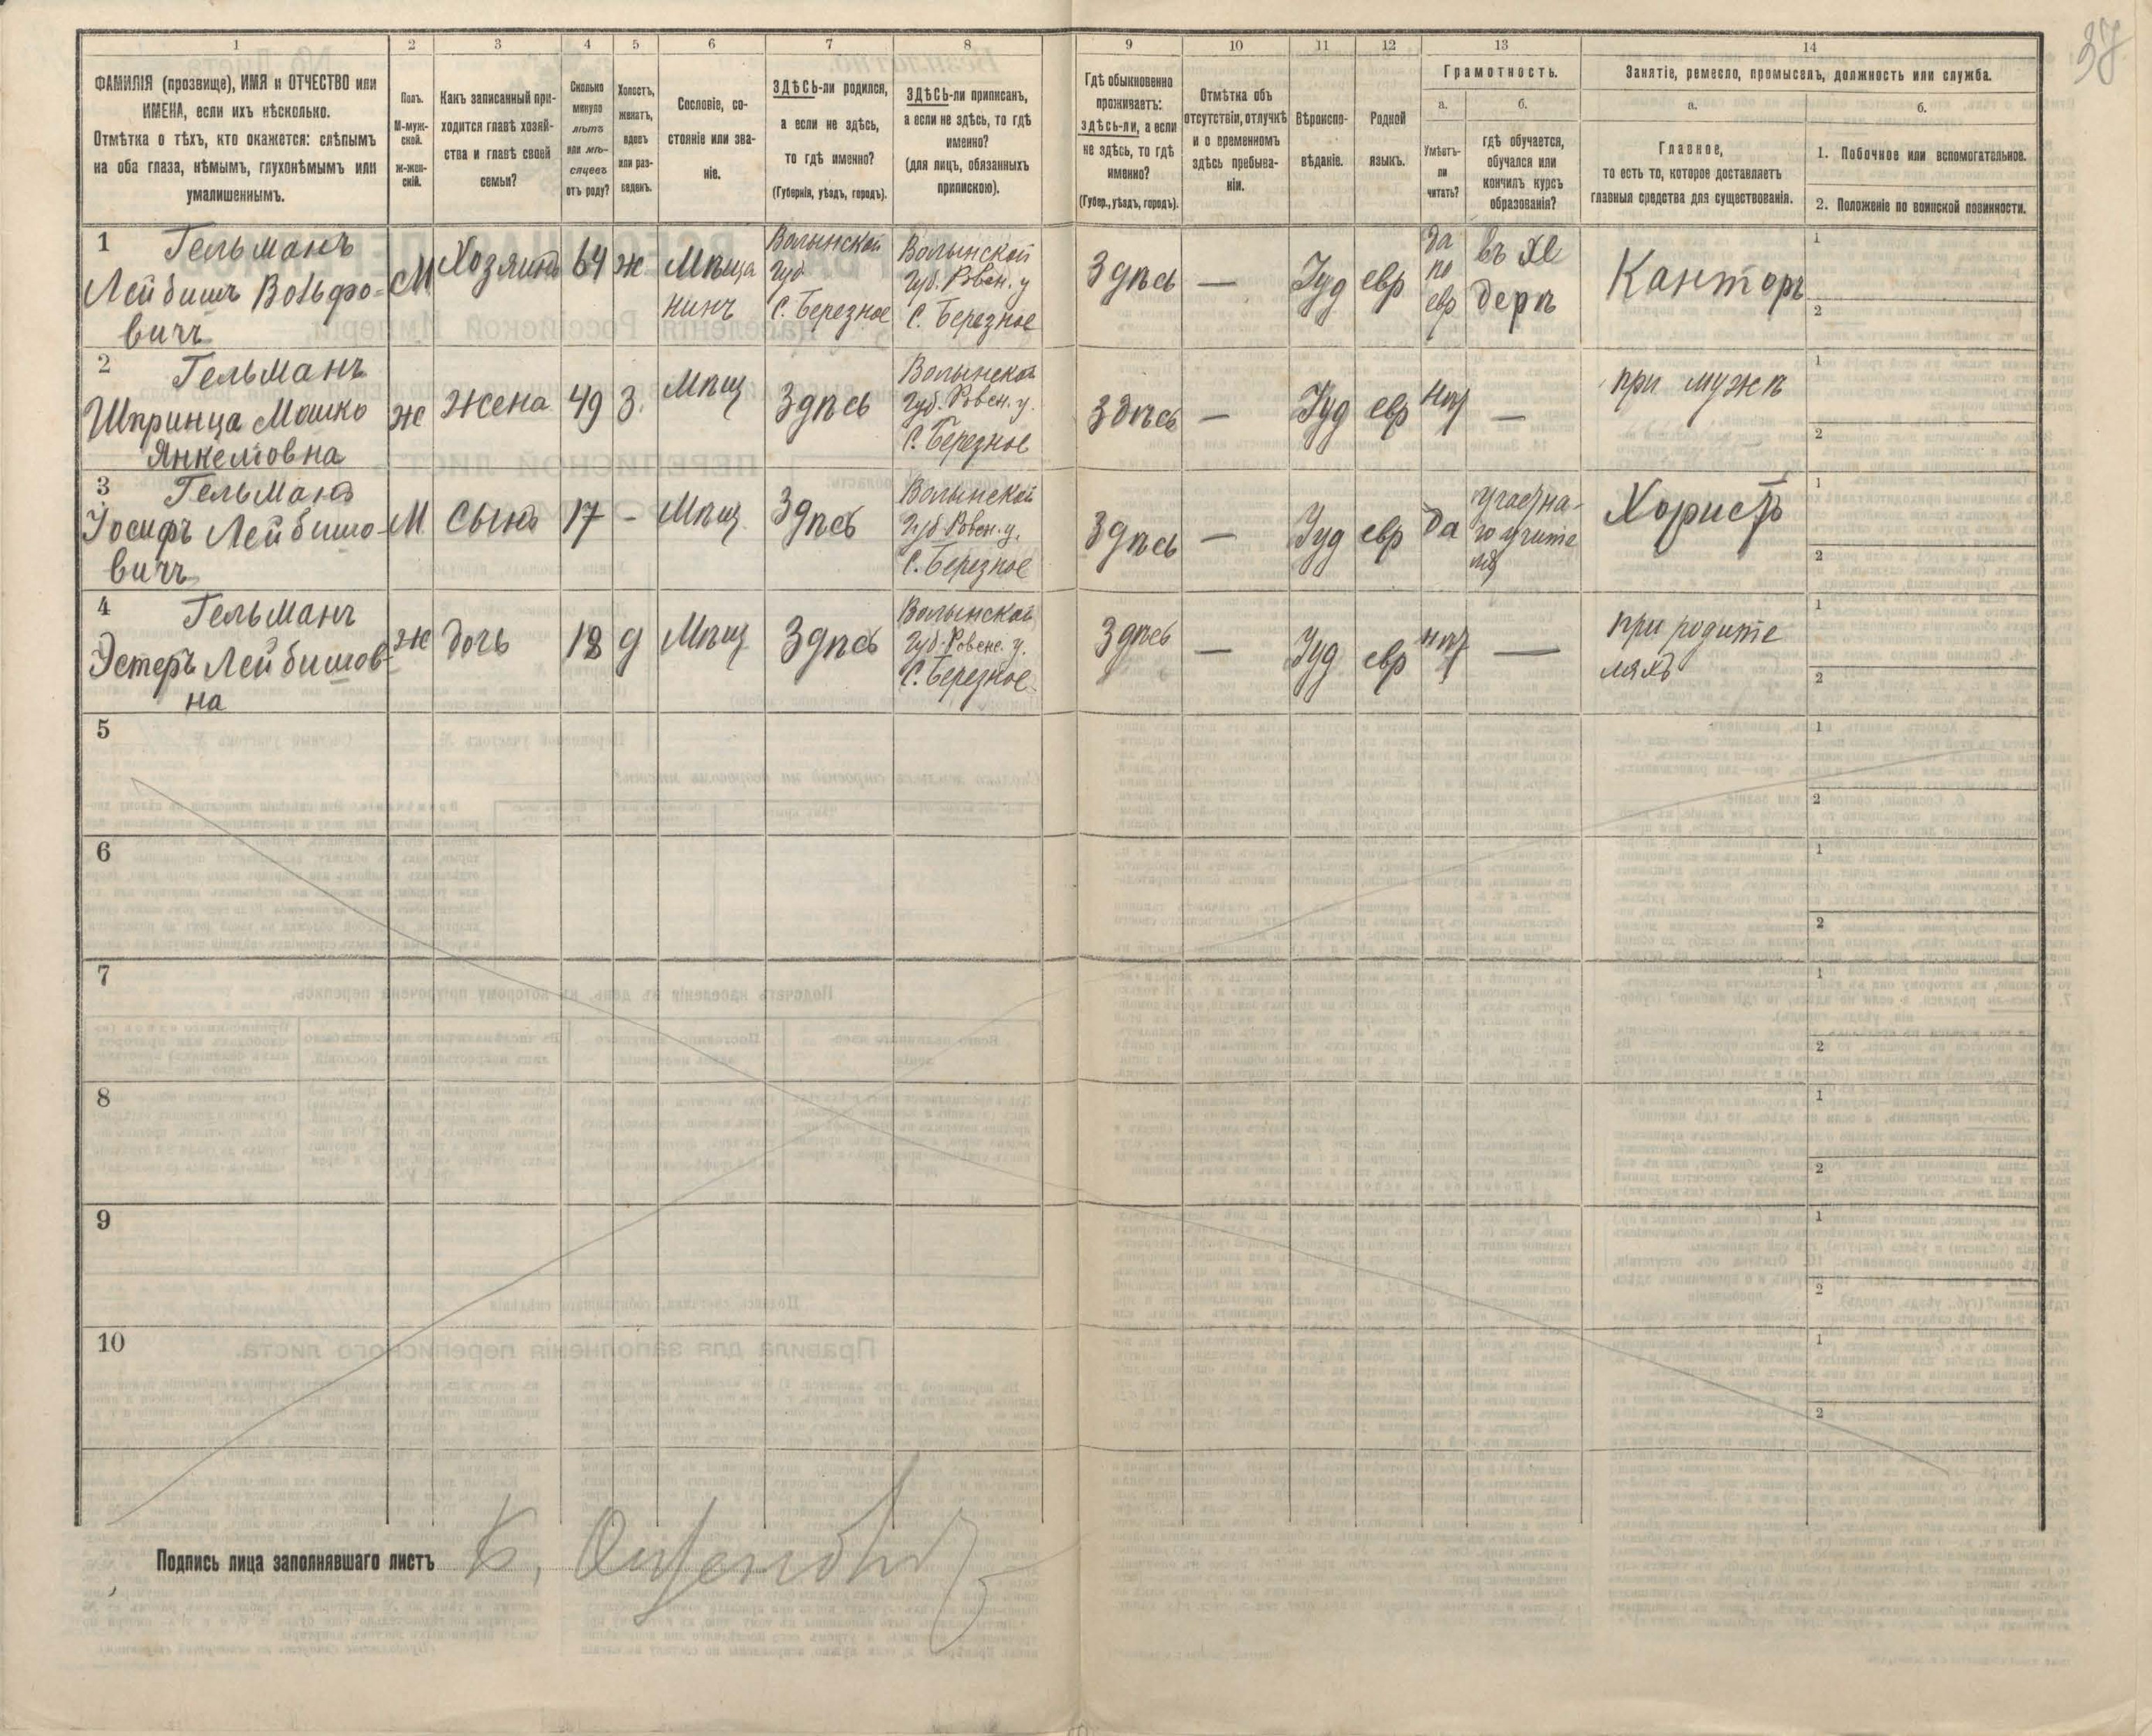 37
1 2 3 4 5 6 7 8 9 10 11 12 13 14
ФАМИЛІЯ (прозвище), ИМЯ и ОТЧЕСТВО или
ИМЕНА, если ихъ нѣсколько.
Отмѣтка о тѣхъ, кто окажется: слѣпымъ
на оба глаза, нѣмымъ, глухонѣмымъ или
умалишеннымъ.
Полъ.
М-муж-
ской.
ж-жен-
скій.
Какъ записанный при-
ходится главѣ хозяй-
ства и главѣ своей
семьи?
Сколько
минуло
лѣтъ
или мѣ-
сяцевъ
отъ роду?
Холостъ,
женатъ,
вдовъ
или раз-
веденъ.
Сословіе, со-
стояніе или зва-
ніе.
ЗДѢСЬ-ли родился,
а если не здѣсь,
то гдѣ именно?
(Губернія, уѣздъ, городъ).
ЗДѢСЬ-ли приписанъ,
а если не здѣсь, то гдѣ
именно?
(для лицъ, обязанныхъ
припискою).
Гдѣ обыкновенно
проживаетъ:
здѣсь-ли, а если
не здѣсь, то гдѣ
именно?
(Губер., уѣздъ, городъ).
Отмѣтка объ
отсутствіи, отлучкѣ
и о временномъ
здѣсь пребыва-
ніи.
Вѣроиспо-
вѣданіе.
Родной
языкъ.
Грамотность.
а.
Умѣетъ-
ли
читать?
б.
гдѣ обучается,
обучался или
кончилъ курсъ
образованія?
Занятіе, ремесло, промыселъ, должность или служба.
а.
Главное,
то есть то, которое доставляетъ
главныя средства для существованія.
б.
1. Побочное или вспомогательное.
2. Положеніе по воинской повинности.
1
Гельманъ
Лейбишъ Вольфо-
вичъ
М
Хозяинъ
64
ж
Мѣща
нинъ
Волынской
Губ
С. Березное
Волынской
Губ. Ровен. у
С. Березное
Здѣсь
—
Іуд
евр
да
по
евр
въ хе
дерѣ
Канторъ
1
2
2
Гельманъ
Шпринца Мошко
Янкелiовна
ж
жена
49
З.
Мѣщ
Здѣсь
Волынской
Губ. Ровен. у.
С. Березное
Здѣсь
—
Іуд
евр
нѣт
—
при мужѣ
1
2
3
Гельманъ
Іосифъ Лейбишо-
вичъ
М
Сынъ
17
-
Мѣщ
Здѣсь
Волынской
Губ. Ровен. у.
С. Березное
Здѣсь
—
Іуд
евр
да
у частна-
го учите
ля
Хористъ
1
2
4
Гельманъ
Эстеръ Лейбишов-
на
ж
дочь
18
д
Мѣщ
Здѣсь
Волынской
Губ. Ровенс. у.
С. Березное
Здѣсь
—
Іуд
евр
нѣт
—
при родите
ляхъ
1
2
5
1
2
6
1
2
7
1
2
8
1
2
9
1
2
10
1
2
Подпись лица заполнявшаго листъ